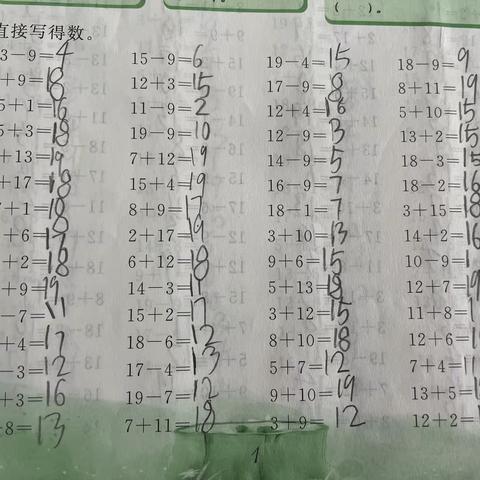 ( )。
直接写得数。
3－9=4 15－9=6 19－4=15 18－9=9
＋9=18 12＋3=15 17－9=8 8＋11=19
5＋1=16 11－9=2 12＋4=16 5＋10=15
5＋3=18 19－9=10 12－9=3 13＋2=15
＋13=19 7＋12=19 14－9=5 18－3=15
＋17=18 15＋4=19 16－9=7 18－2=16
7＋1=18 8＋9=17 18－1=7 3＋15=18
＋6=17 2＋17=19 3＋10=13 14＋2=16
＋2=18 6＋12=18 9＋6=15 10－9=1
＋9=19 14－3=11 5＋13=18 12＋7=19
－7=11 15＋2=17 3＋12=15 11＋8=1
＋4=17 18－6=12 8＋10=18 12＋6=1
－3=12 17－4=13 5＋7=12 7＋4=11
＋3=16 19－7=12 9＋10=19 13＋5=1
＋8=13 7＋11=18 3＋9=12 12＋2=1
1